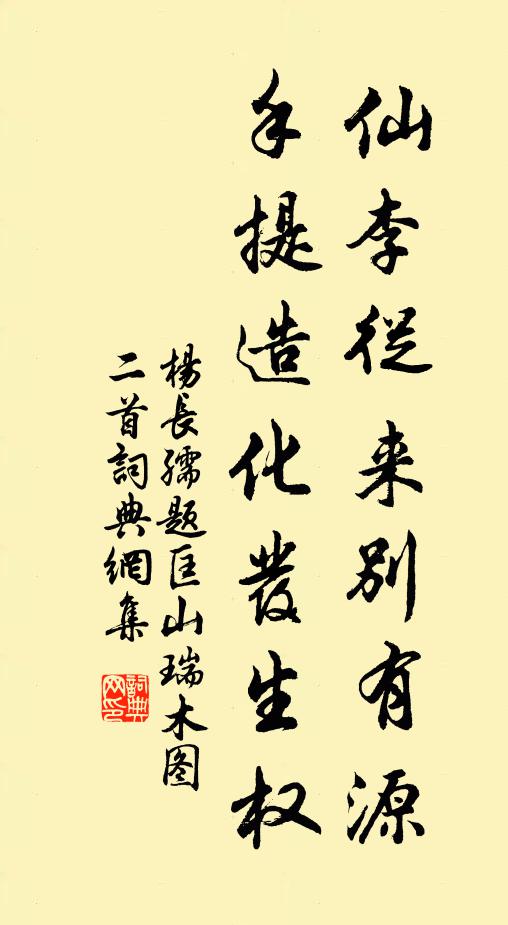 仙李從来别有源
手提造化發生权
楊長孺题匡山瑞木图
二首詞典網集
詞典网印